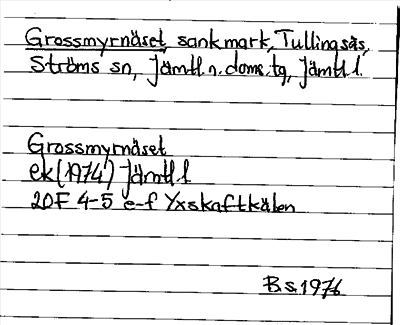 Grossmyrnäset, sankmark, Tullingsås,
Ströms sn, Jämtl. n. doms. tg, Jämtl. l.
Grossmyrnäset
ek (1974) Jämtl l
20F 4-5 e-f Yxskaftkälen
Bs 1976